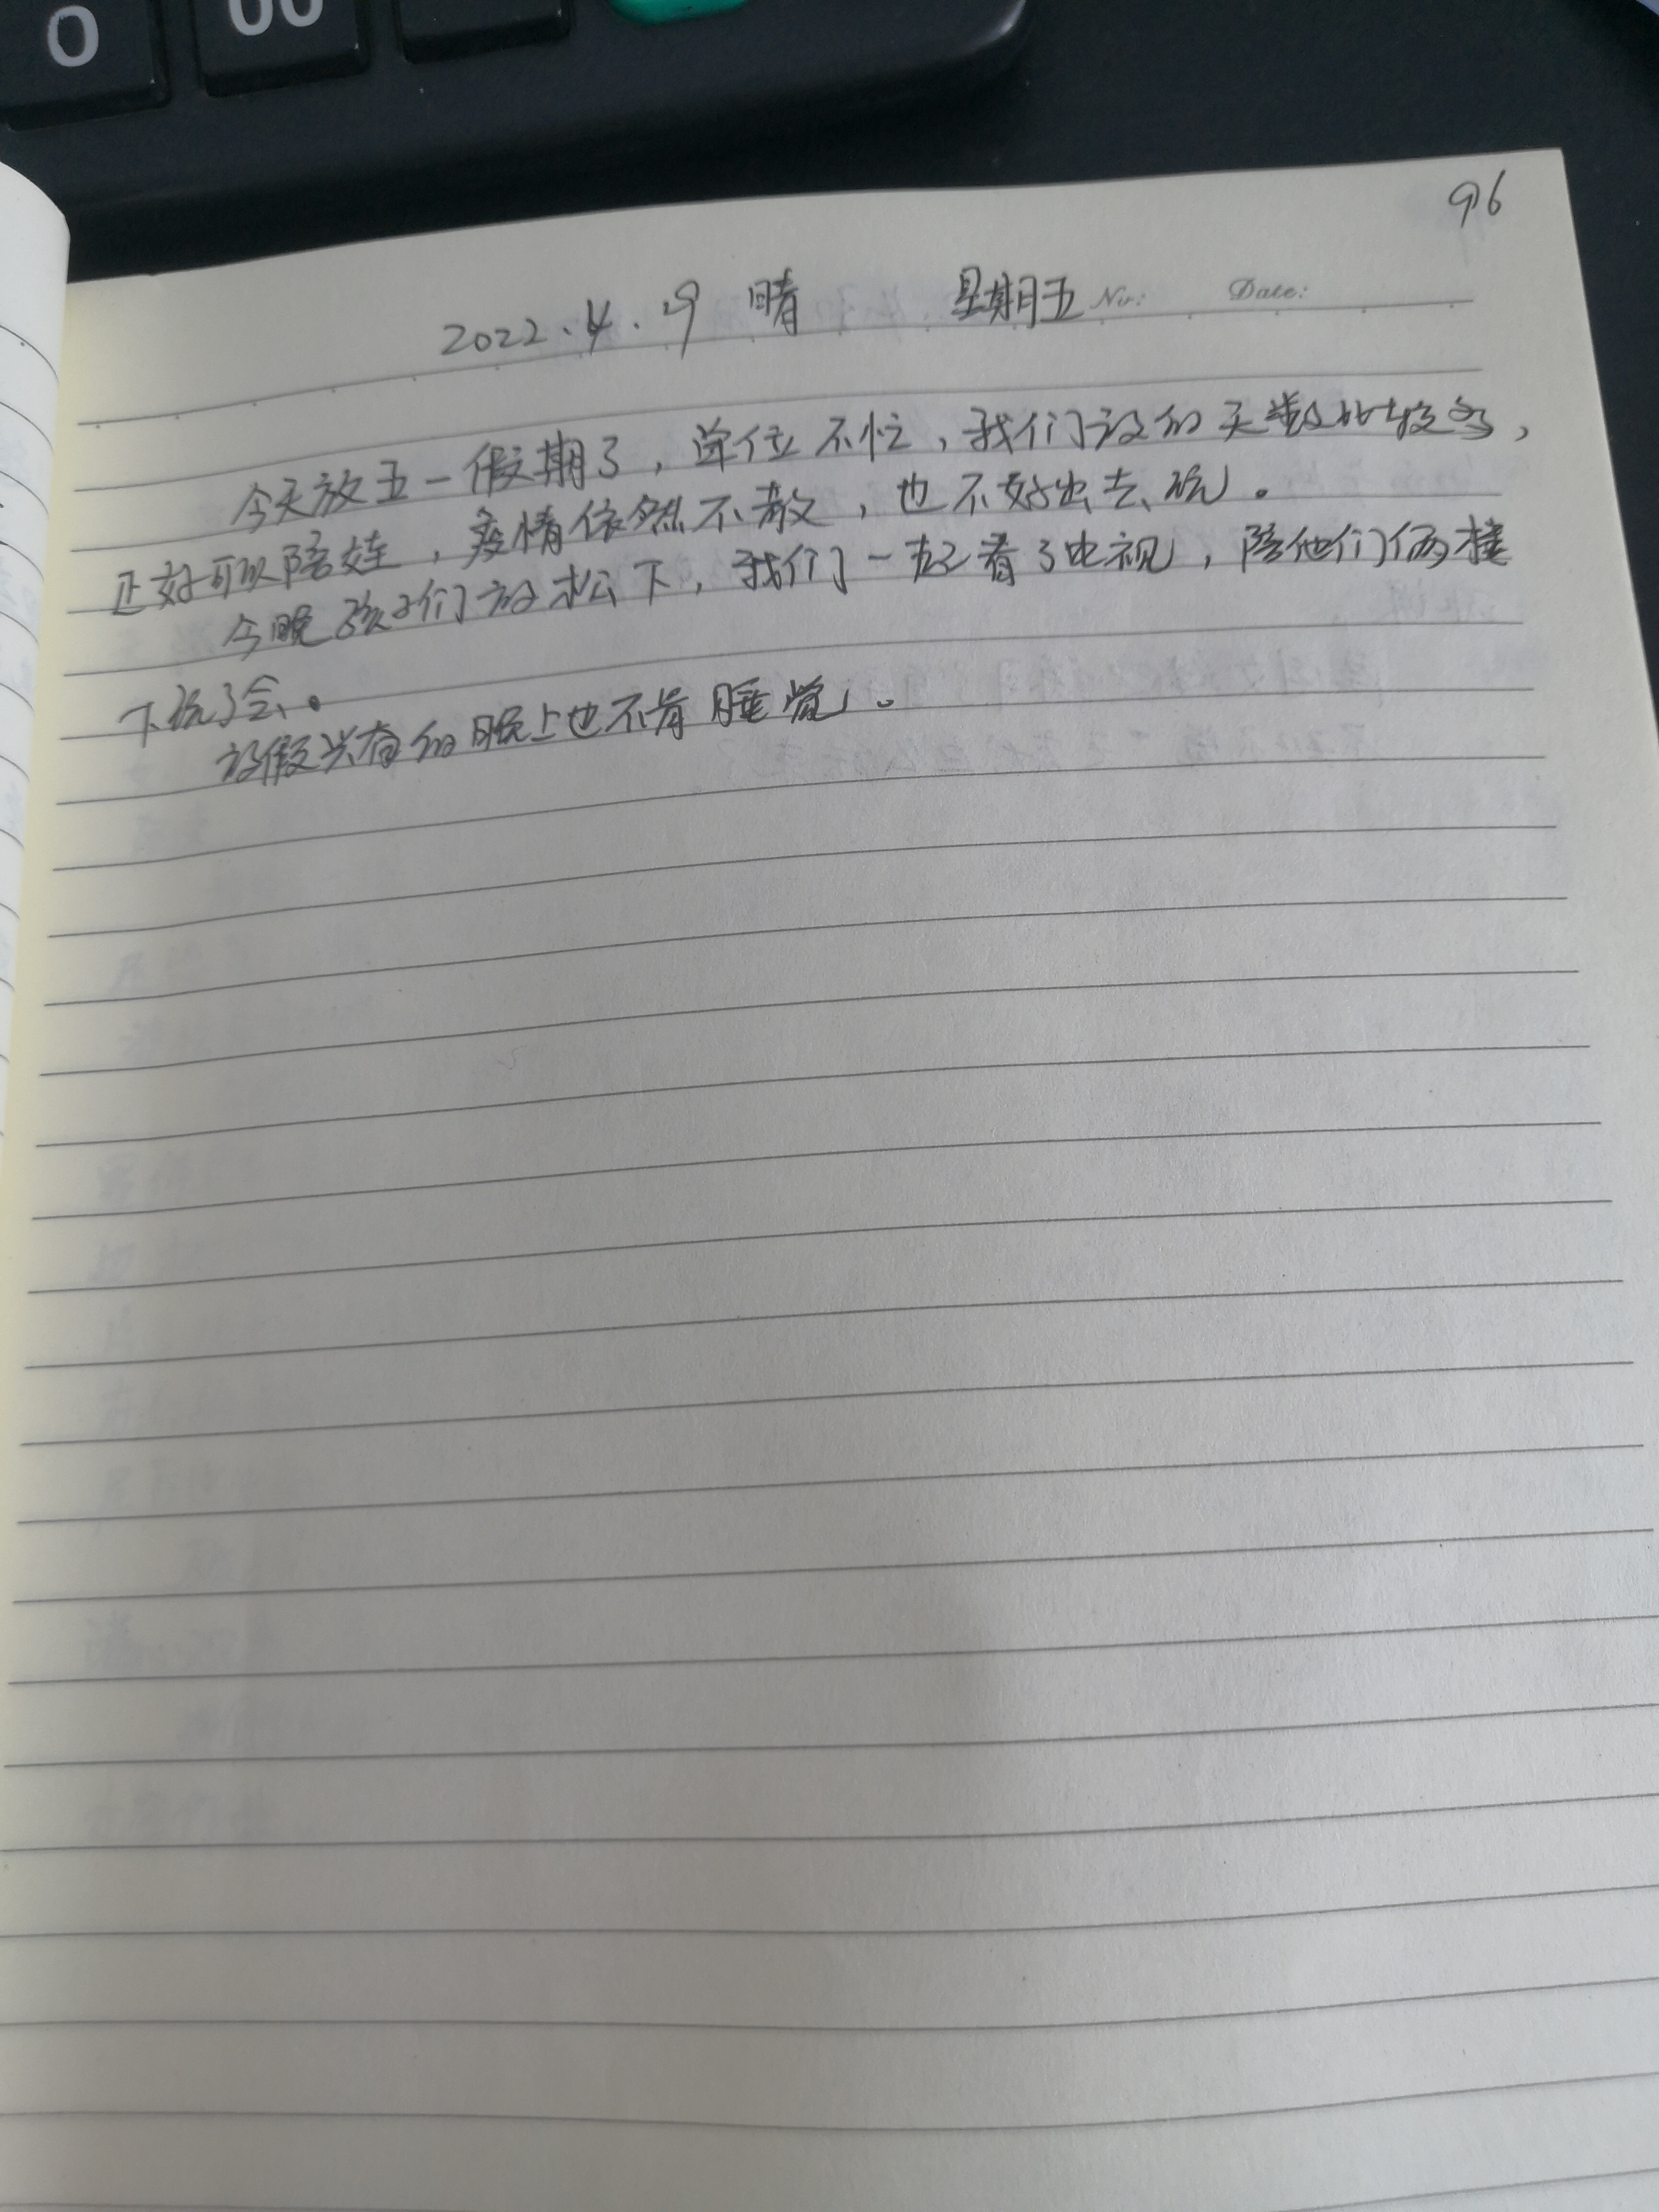 0 00
96
2022.4.29 晴 星期五 No: Date:
今天放五一假期了，单位不忙，我们放的天数比较多，
正好可以陪娃，疫情依然不散，也不好出去玩。
今晚孩子们放松下，我们一起看了电视，陪他们俩楼
下玩了会。
放假兴奋的晚上也不肯睡觉。